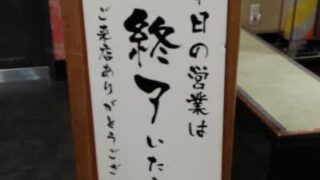 日の営業は
終了いた
ご来店ありがとうござ